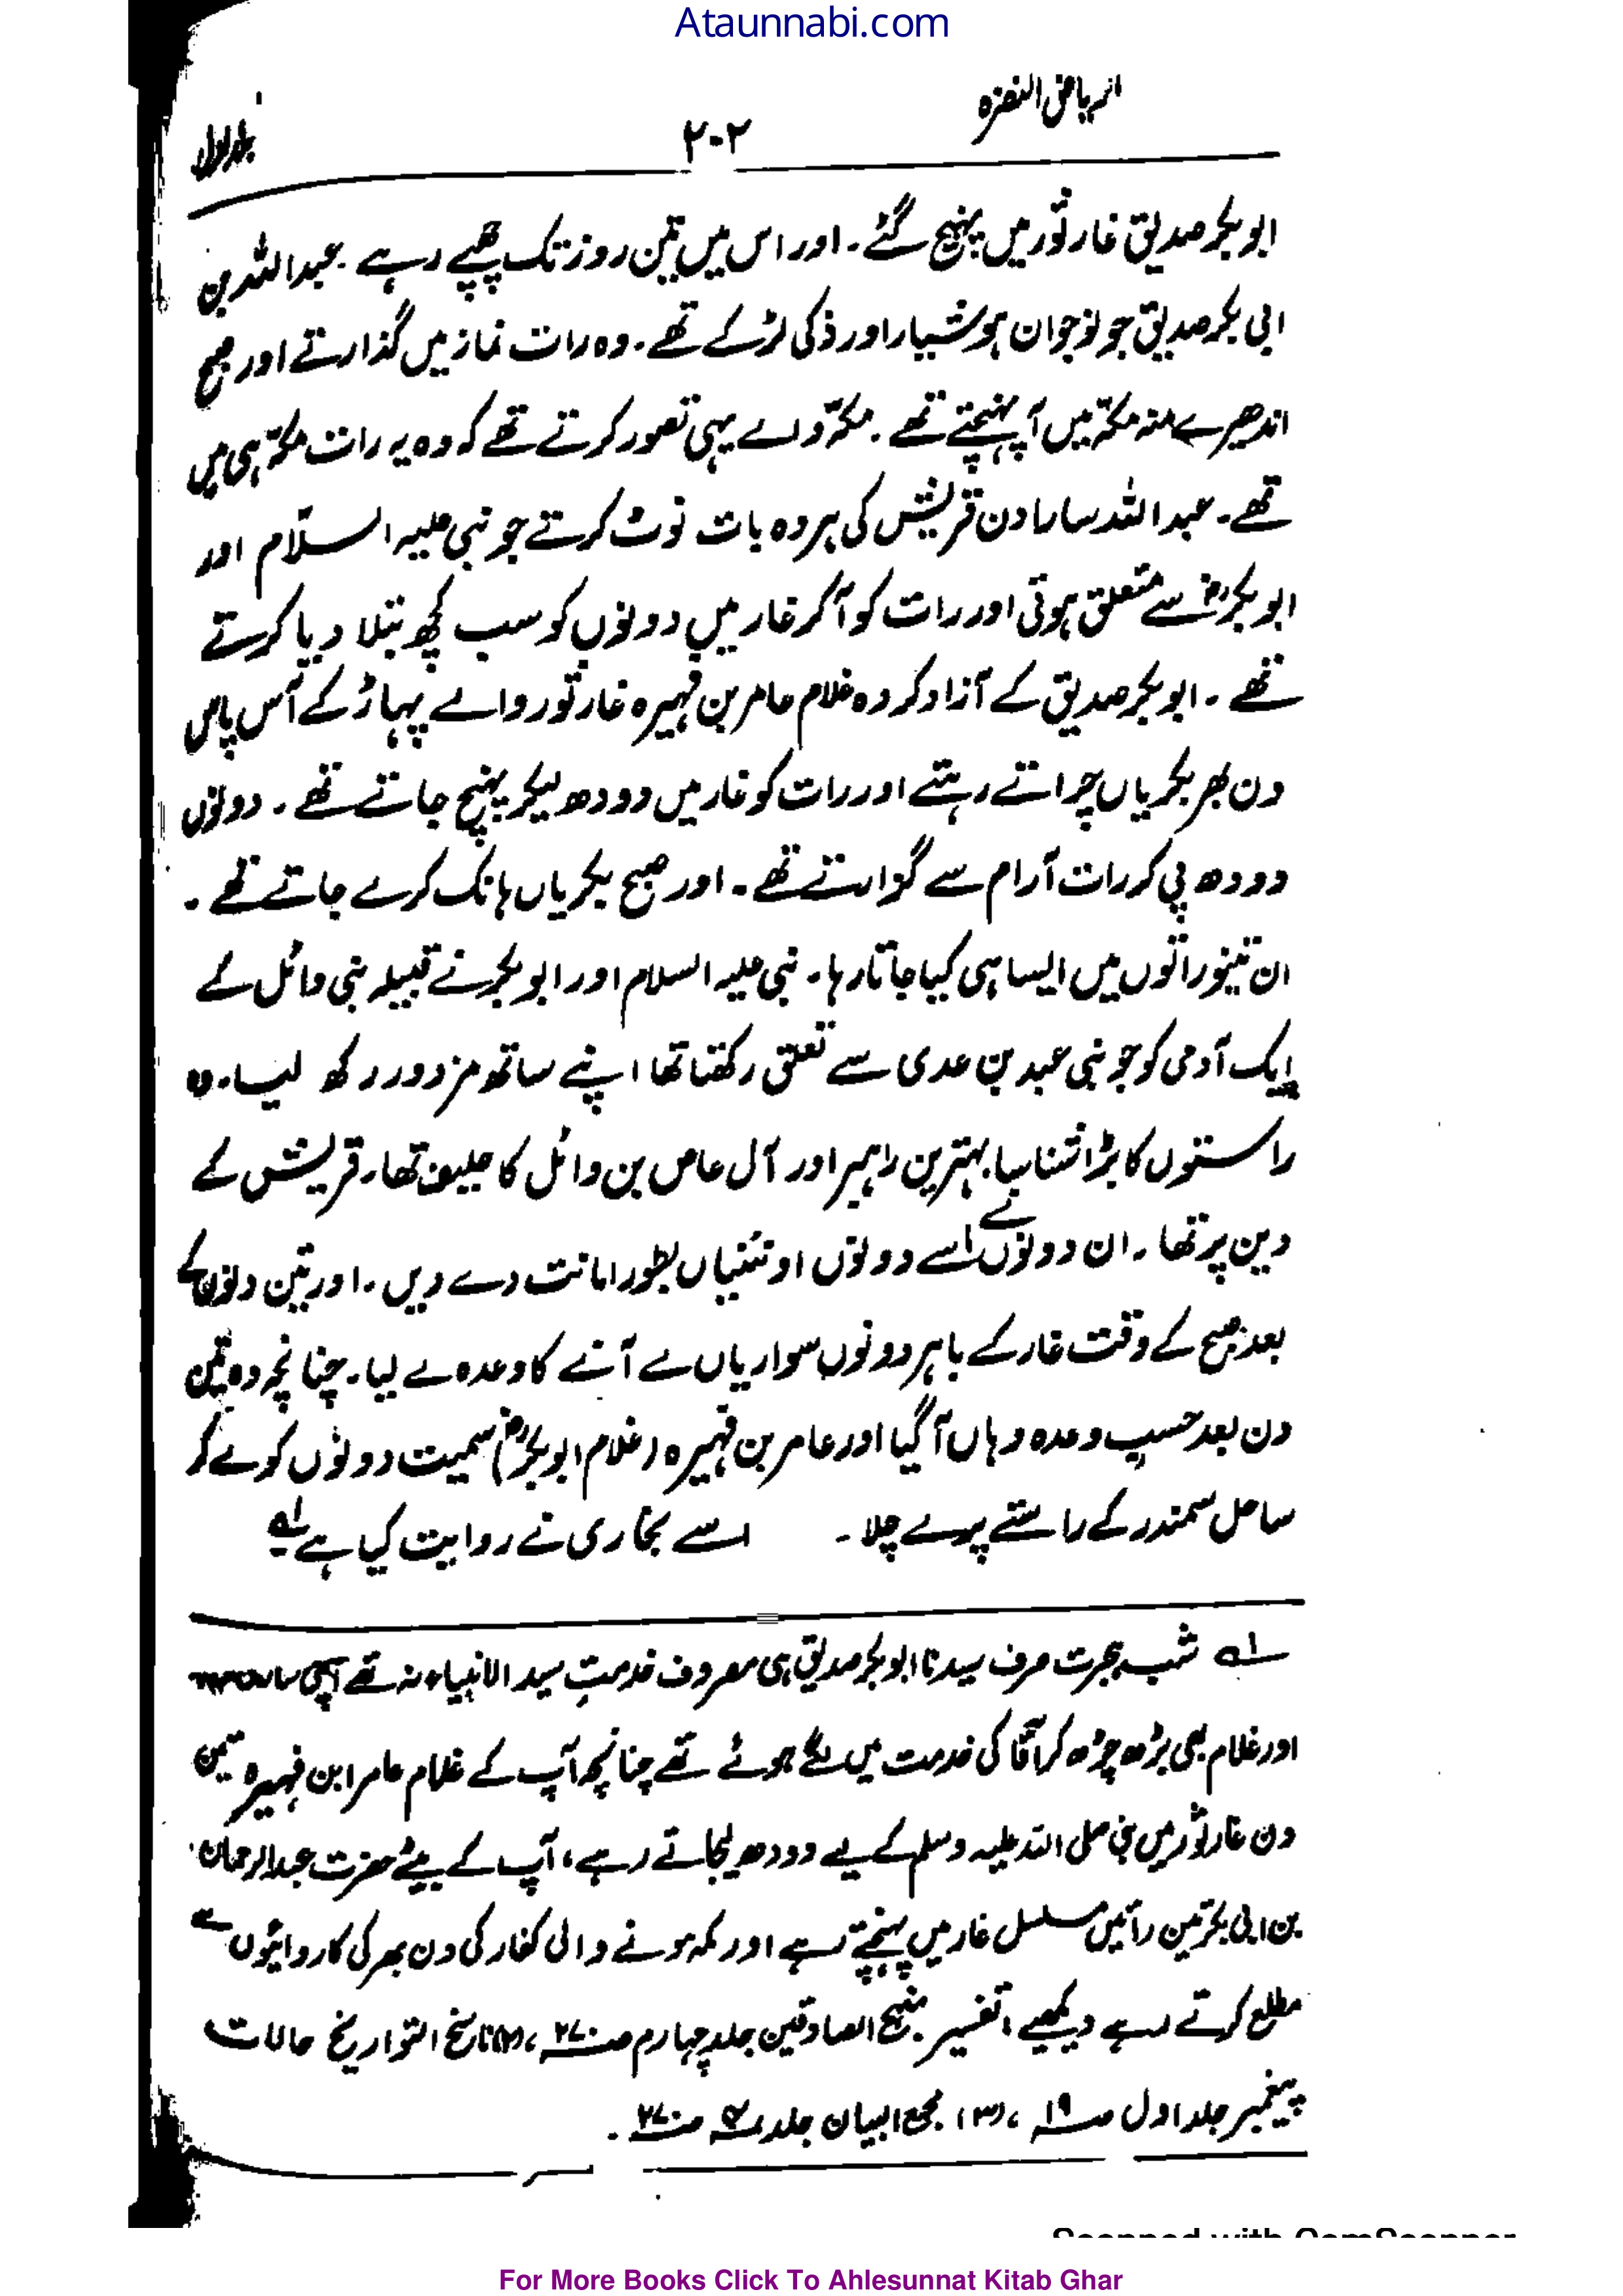 Ataunnabi.com
الریاض النضرہ
۲۰۲
جلد اول
ابوبکر صدیق غار ثور میں پہنچ گئے۔ اور اس میں تین روز تک چھپے رہے۔ عبداللہ بن
ابی بکر صدیق جو نوجوان ہوشیار اور ذکی لڑکے تھے۔ وہ رات نماز میں گذارتے اور صبح
اندھیرے منہ مکہ میں آ پہنچتے تھے۔ مکہ والے یہی تصور کرتے تھے کہ وہ یہ رات مکہ ہی میں
تھے۔ عبداللہ سارا دن قریش کی ہر وہ بات نوٹ کرتے جو نبی علیہ السلام اور
ابوبکرؓ سے متعلق ہوتی اور رات کو آکر غار میں دونوں کو سب کچھ بتلا دیا کرتے
تھے۔ ابوبکر صدیق کے آزاد کردہ غلام عامر بن فہیرہ غار ثور والے پہاڑ کے آس پاس
دن بھر بکریاں چراتے رہتے اور رات کو غار میں دودھ لیکر پہنچ جاتے تھے۔ دونوں
دودھ پی کر رات آرام سے گزارتے تھے۔ اور صبح بکریاں ہانک کر لے جاتے تھے۔
ان تینوں راتوں میں ایسا ہی کیا جاتا رہا۔ نبی علیہ السلام اور ابوبکر نے قبیلہ بنی وائل کے
ایک آدمی کو جو بنی عبد بن عدی سے تعلق رکھتا تھا اپنے ساتھ مزدور رکھ لیا۔ وہ
راستوں کا بڑا شناسا بہترین راہبر اور آل عاص بن وائل کا حلیف تھا۔ قریش کے
دین پر تھا۔ ان دونوں نے اسے دونوں اونٹنیاں بطور امانت دے دیں۔ اور تین دنوں کے
بعد صبح کے وقت غار کے باہر دونوں سواریاں لے آنے کا وعدہ لے لیا۔ چنانچہ وہ تین
دن بعد حسب وعدہ وہاں آگیا اور عامر بن فہیرہ (غلام ابوبکرؓ) سمیت دونوں کو لے کر
ساحل سمندر کے راستے پر لے چلا۔ اسے بخاری نے روایت کیا ہے لہ
لہ شب ہجرت صرف سیدنا ابوبکر صدیق ہی مصروف خدمتِ سید الانبیاء نہ تھے آپکی
اور غلام بھی بڑھ چڑھ کر آقا کی خدمت میں لگے ہوئے تھے چنانچہ آپ کے غلام عامر ابن فہیرہ تین
دن غار ثور میں نبی صلی اللہ علیہ وسلم کے لیے دودھ لیجاتے رہے، آپ کے بیٹے حضرت عبدالرحمان
بن ابی بکر تین راتیں مسلسل غار میں پہنچتے رہے اور مکہ ہونے والی کفار کی دن بھر کی کاروائیوں سے
مطلع کرتے رہے دیکھیے، تفسیر منہج الصادقین جلد چہارم صـ۲۷۰، (۲) ناسخ التواریخ حالات
پیغمبر جلد اول صـ۱۹، (۳) مجمع البیان جلد صـ۲۷۰۔
For More Books Click To Ahlesunnat Kitab Ghar